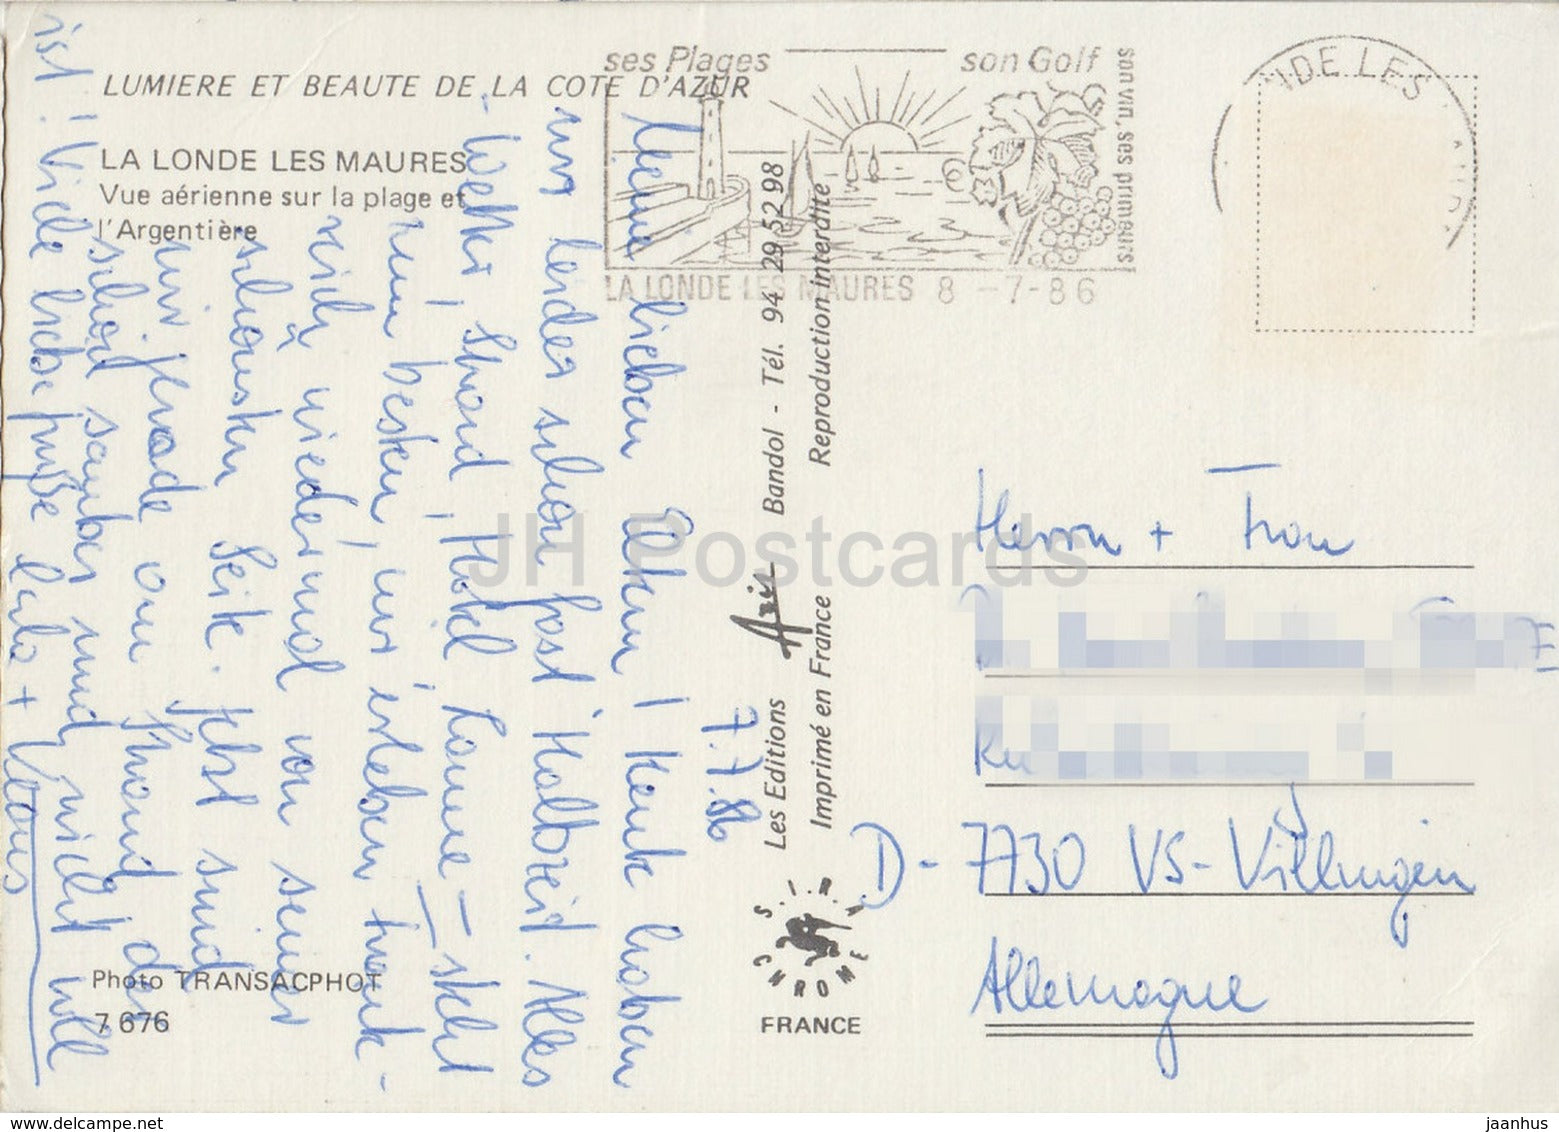 LUMIERE ET BEAUTE DE LA COTE D'AZUR
LA LONDE LES MAURES
Vue aérienne sur la plage et
l'Argentière
ses Plages son Golf
son vin, ses primeurs
LA LONDE LES MAURES 8 -7-86
NDE LES
7.7.86
Meine lieben Eltern! Heute haben
wir leider schon fast Halbzeit. Alles
- Wetter, Strand, Hotel, Laune - steht
zum besten, wir erleben Frank-
reich wiedermal von seiner
schönsten Seite. Jetzt sind
wir gerade am Strand, der
schön sauber und nicht voll
ist! Viele liebe Grüße
+ Klaus
Les Editions Aris Bandol - Tél. 94 29 52 98
Imprimé en France Reproduction interdite
S.I.R.A.
CHROME
FRANCE
Photo TRANSACPHOT
7 676
Herrn + Frau
D- 7730 VS-Villingen
Allemagne
JH Postcards
www.delcampe.net
jaanhus